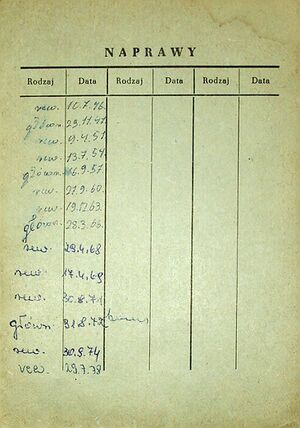 NAPRAWY
Rodzaj Data Rodzaj Data Rodzaj Data
rew. 10.7.46
główn. 23.11.47
rew. 9.4.51
rew. 13.7.54
główn. 16.9.57.
rew. 27.9.60.
rew. 19.12.63.
główn. 28.3.66.
rew. 29.4.68
rew. 17.4.69
rew. 30.8.71
główn. 31.8.72
rew. 30.9.74
rew. 29.7.78